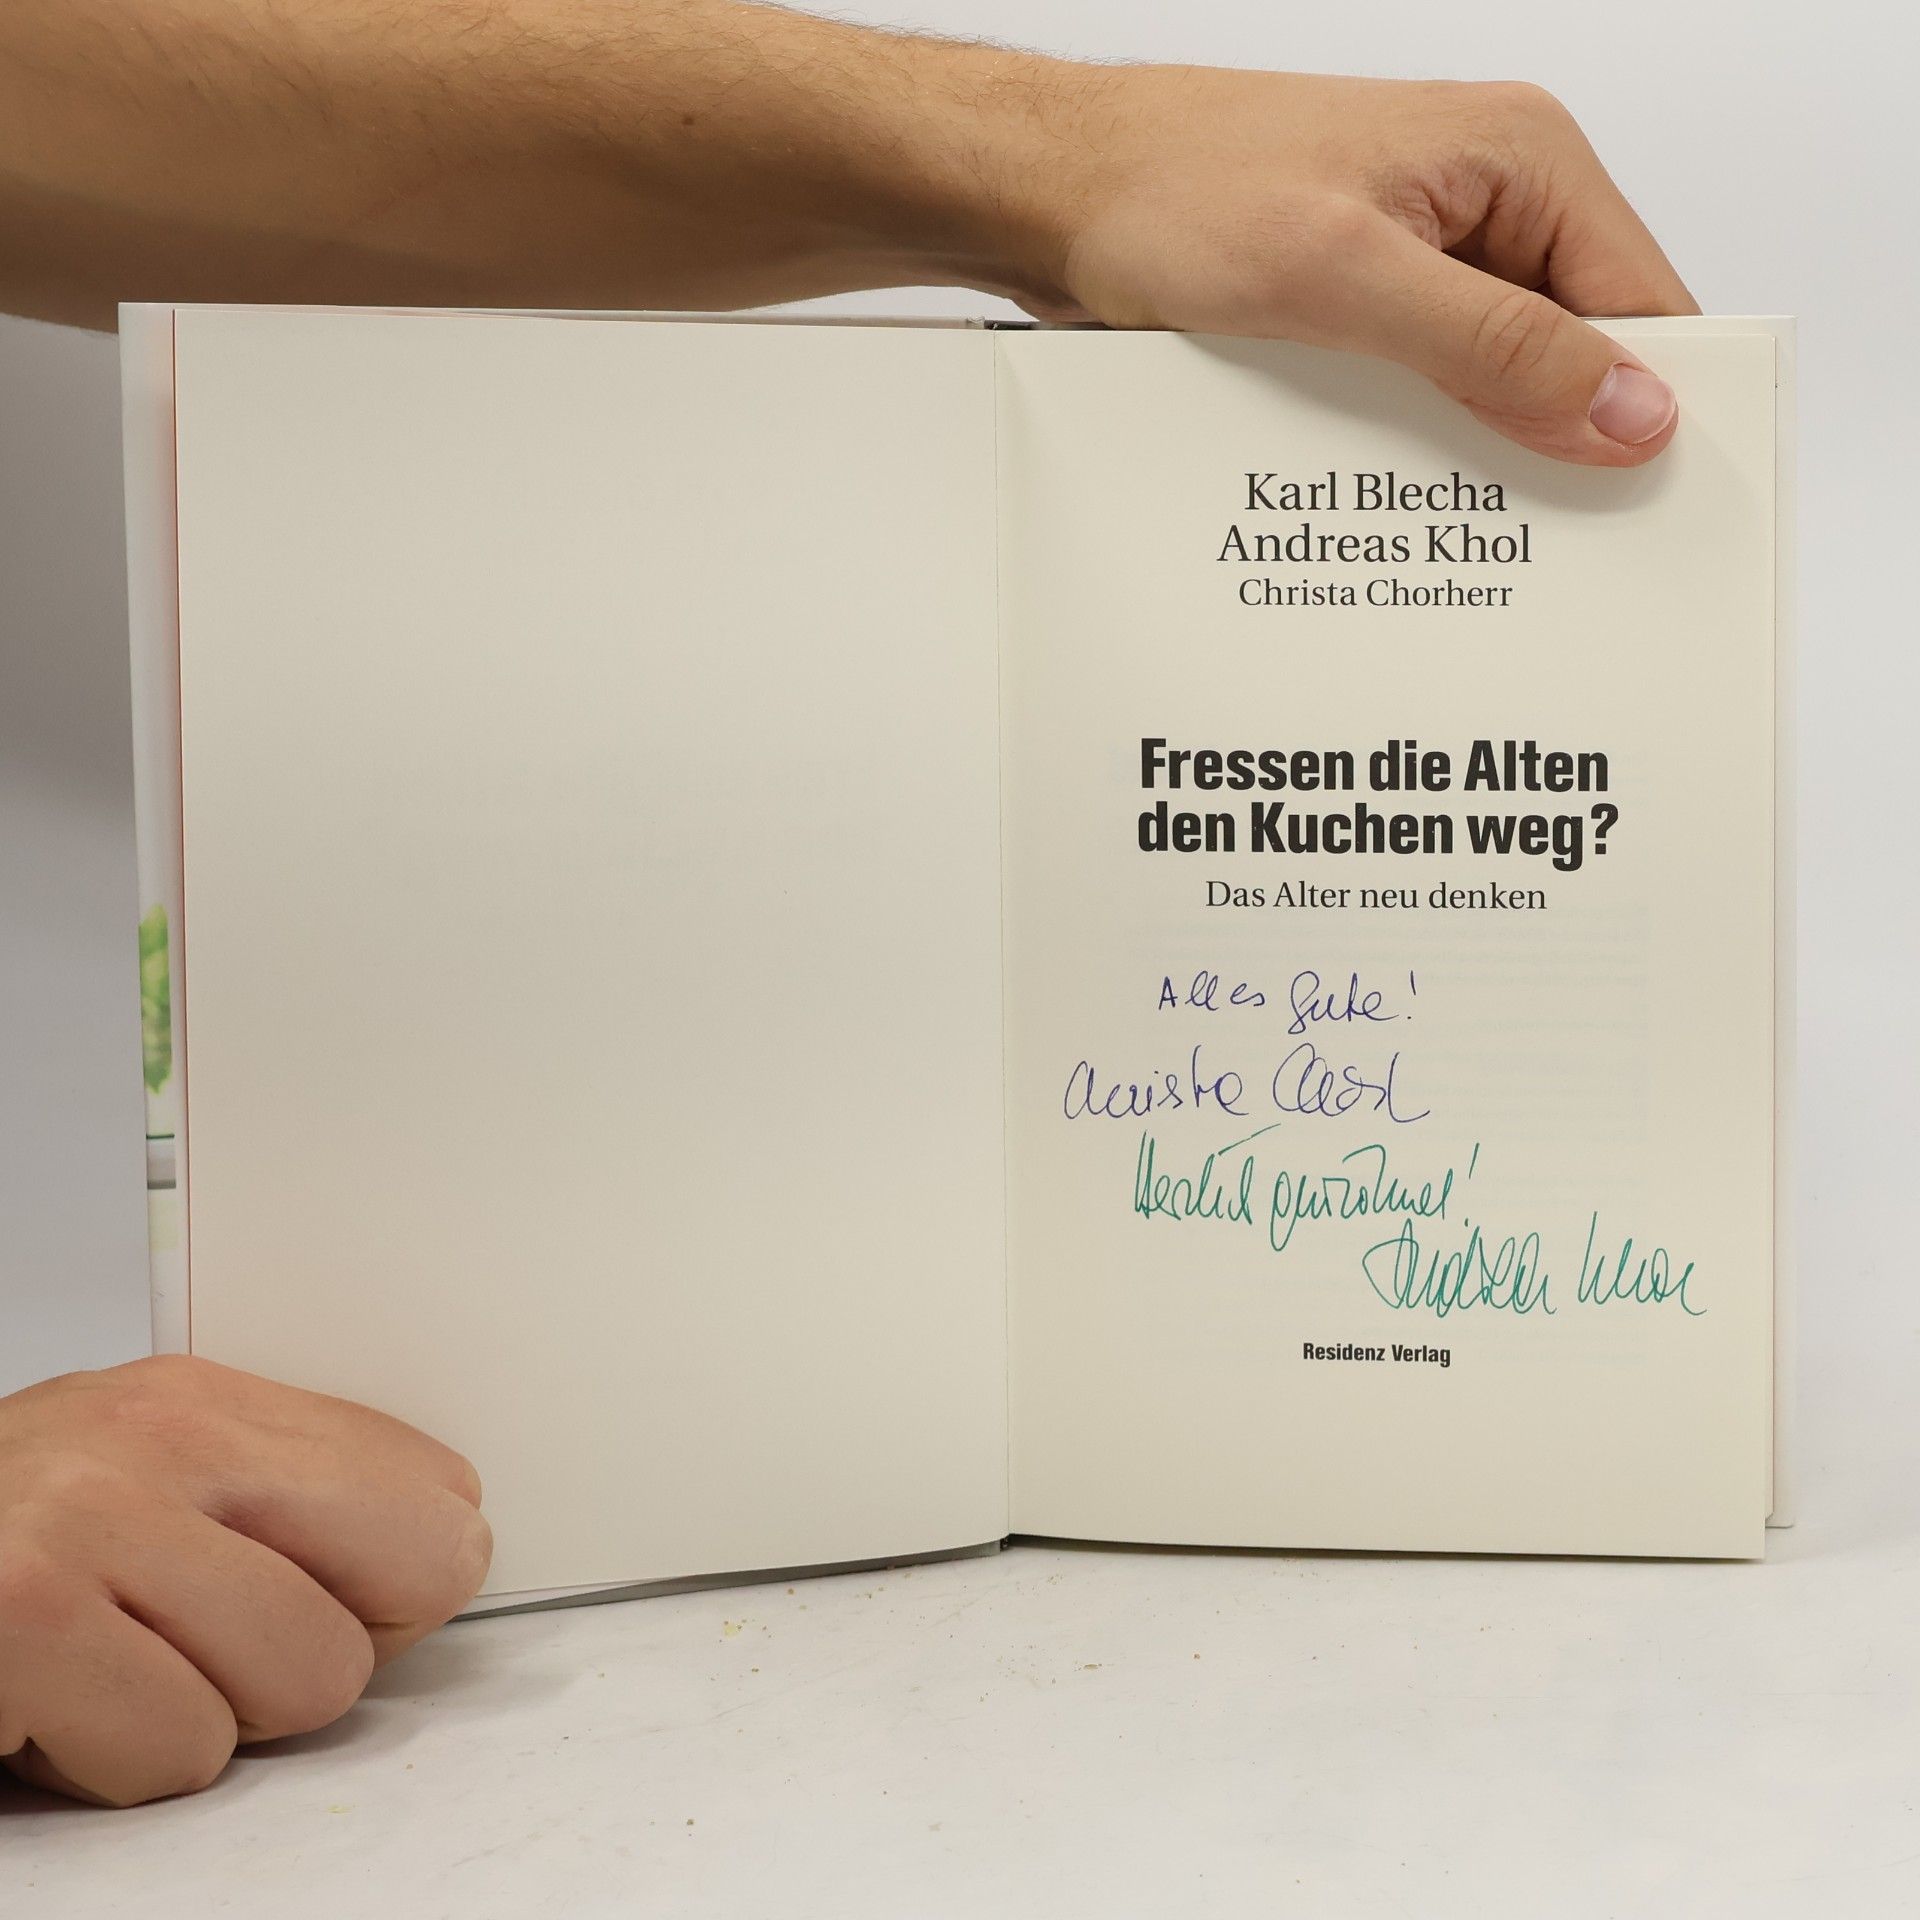 Karl Blecha
Andreas Khol
Christa Chorherr
Fressen die Alten
den Kuchen weg?
Das Alter neu denken
Alles Gute!
Christa
Herzlich gewidmet!
Andreas Khol
Residenz Verlag